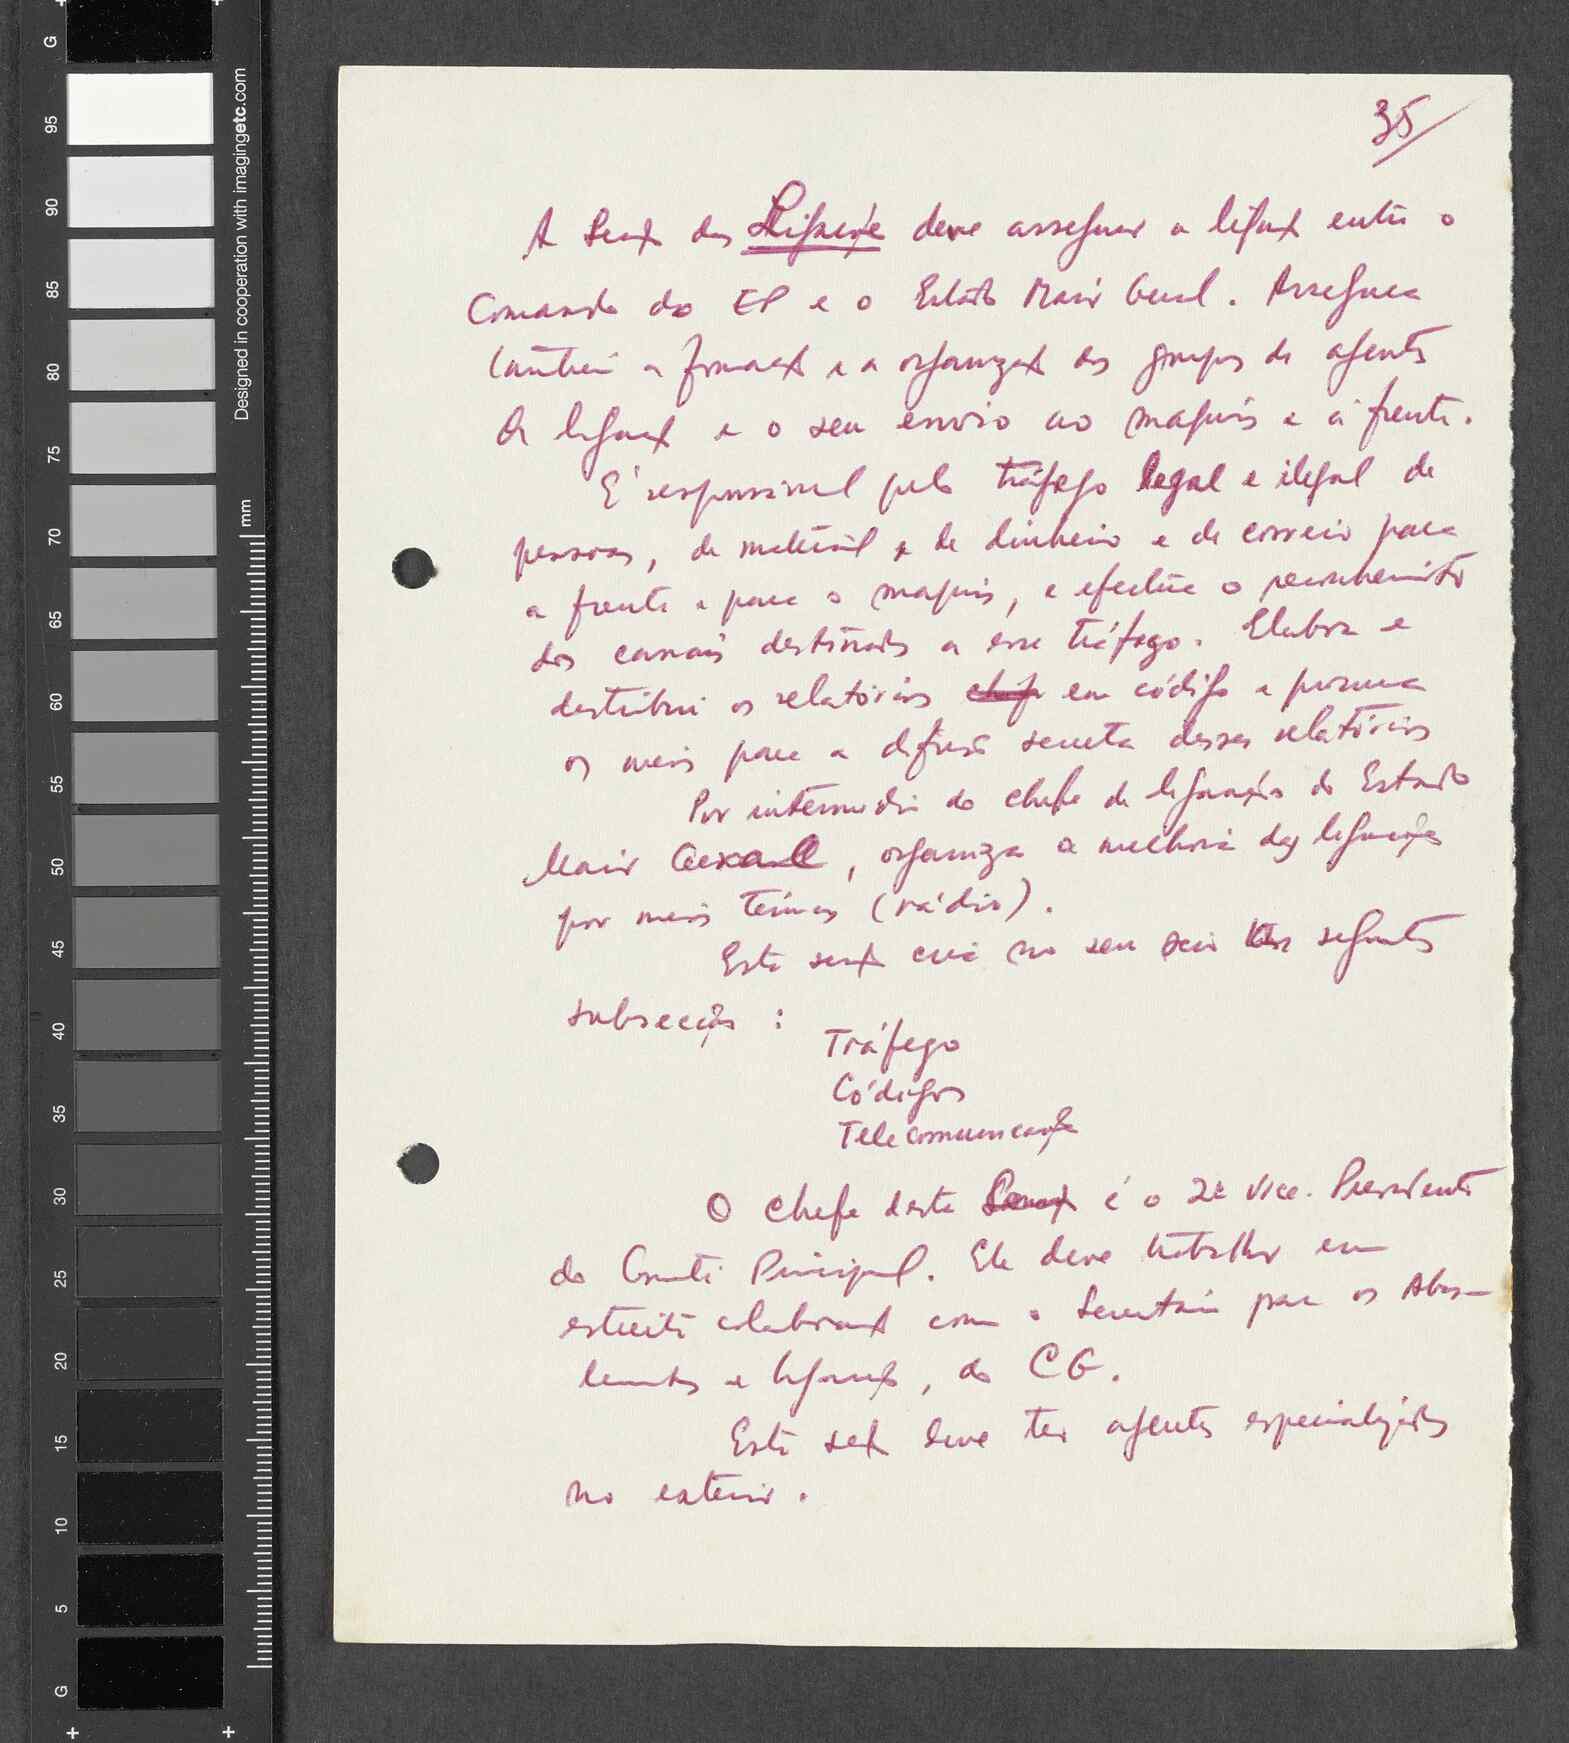 35
A Secção das Ligações deve assegurar a ligação entre o
Comando do EP e o Estado Maior Geral. Assegura
também a formação e a organização dos grupos de agentes
de ligação e o seu envio ao maquis e à frente.
É responsável pelo tráfego legal e ilegal de
pessoas, de material e de dinheiro e de correio para
a frente e para o maquis, e efectua o reconhecimento
dos canais destinados a esse tráfego. Elabora e
destribui os relatórios em código e procura
os meios para a difusão secreta desses relatórios
Por intermédio do chefe de ligação do Estado
Maior Geral, organiza a melhoria das ligações
por meios técnicos (rádio).
Esta secção cria no seu seio as seguintes
subsecções :
Tráfego
Códigos
Telecomunicações
O chefe desta Secção é o 2º Vice-Presidente
do Comité Principal. Ele deve trabalhar em
estreita colaboração com o Secretário para os Abas-
tecimentos e ligação, do CG.
Esta secção deve ter agentes especializados
no exterior.
Designed in cooperation with imagingetc.com
mm
G
95
90
85
80
75
70
65
60
55
50
45
40
35
30
25
20
15
10
5
G